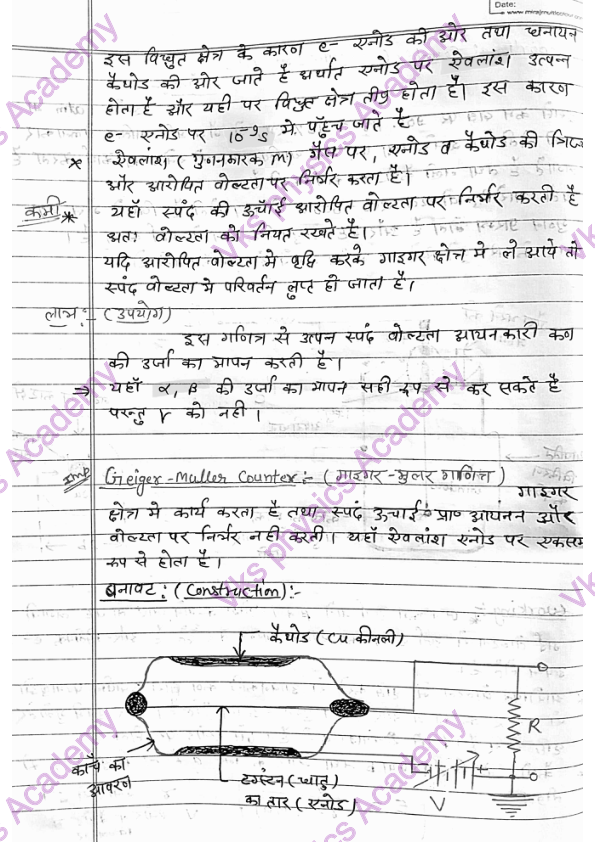 Date:
इस विद्युत क्षेत्र के कारण e- एनोड की ओर तथा धनायन
कैथोड की ओर जाते है अर्थात एनोड पर ऐवलांश उत्पन्न
होता है और यही पर विद्युत क्षेत्र तीव्र होता है। इस कारण
e- एनोड पर 10⁻⁹s में पहुँच जाते है
* ऐवलांश ( गुणनकारक M) गैस पर, एनोड व कैथोड की त्रिज्या
और आरोपित वोल्टता पर निर्भर करता है।
कमी * यहाँ स्पंद की ऊँचाई आरोपित वोल्टता पर निर्भर करती है
अतः वोल्टता को नियत रखते है।
यदि आरोपित वोल्टता मे वृद्धि करके गाइगर क्षेत्र मे ले आये तो
स्पंद वोल्टता मे परिवर्तन लुप्त हो जाता है।
लाभ :- (उपयोग)
इस गणित्र से उत्पन स्पंद वोल्टता आयनकारी कण
की उर्जा का मापन करती है।
⇒ यहाँ α, β की उर्जा का मापन सही रूप से कर सकते है
परन्तु γ को नही।
Imp Geiger-Muller Counter:- (गाइगर-मुलर गणित्र)
गाइगर
क्षेत्र मे कार्य करता है तथा स्पंद ऊचाई प्रा० आयनन और
वोल्टता पर निर्भर नही करती। यहाँ ऐवलांश एनोड पर एकसमान
रूप से होता है।
बनावट: (Construction):-
कैथोड (Cu की नली)
R
काँच का
आवरण
टंगस्टन (धातु)
का तार (एनोड)
V
Vks physics Academy